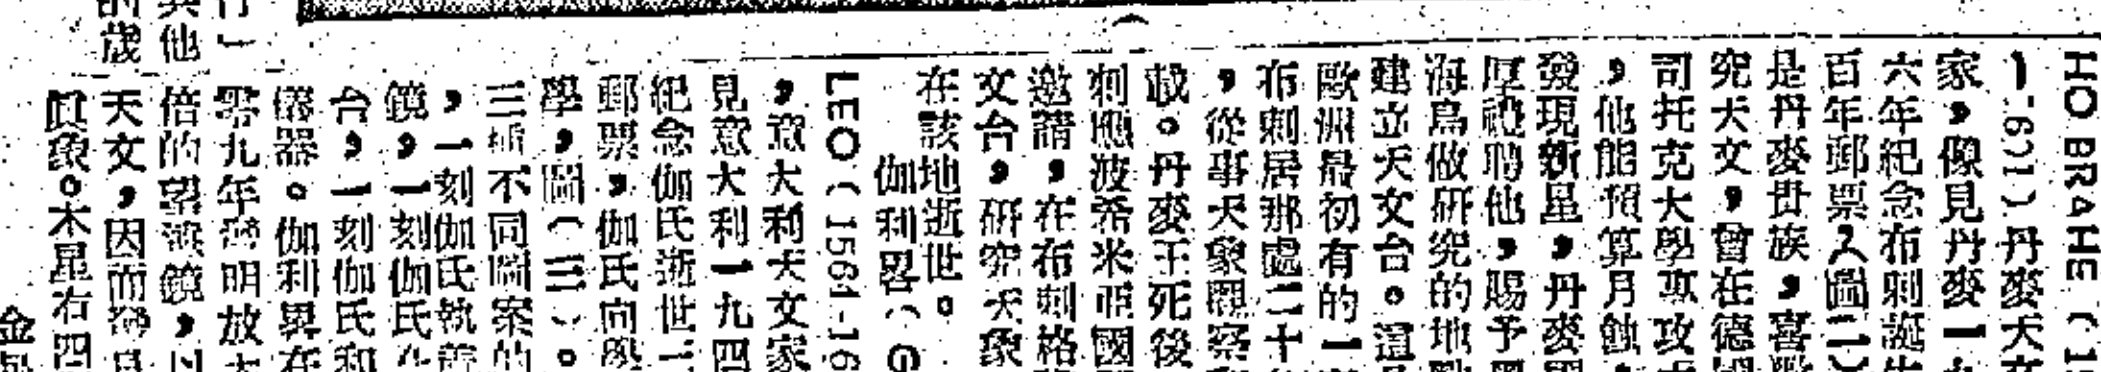 HO BRAHE (1
1601)丹麥天
家,像見丹麥一九
六年紀念布剌誕生
百年郵票(圖二)
是丹麥貴族,喜
究天文,曾在德國
司托克大學專攻
,他能預算月蝕
發現新星,丹麥國
厚禮聘他,賜予
海島做研究的地
建立天文台。這
歐洲最初有的一
布剌居那處二十
,從事天象觀察
載。丹麥王死後
剌應波希米亞國
邀請,在布剌格
文台,研究天象
在該地逝世。
伽利畧(G
LEO(1564-16
,意大利天文家
見意大利一九四
紀念伽氏逝世三
郵票,伽氏向學
學,圖(三)。
三種不同圖案的
,一刻伽氏執
鏡,一刻伽氏在
台,一刻伽氏和
儀器。伽利畧在
零九年發明放大
倍的望遠鏡,以
天文,因而發見
眞象。木星有四
金星
行」
其他
的歲